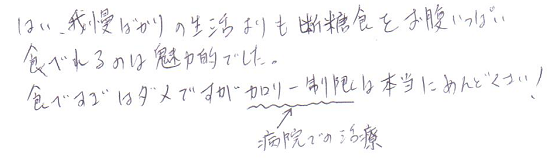 はい、我慢ばかりの生活よりも断糖食をお腹いっぱい
食べれるのは魅力的でした。
食べすぎはダメですがカロリー制限は本当にめんどくさい!
病院での治療